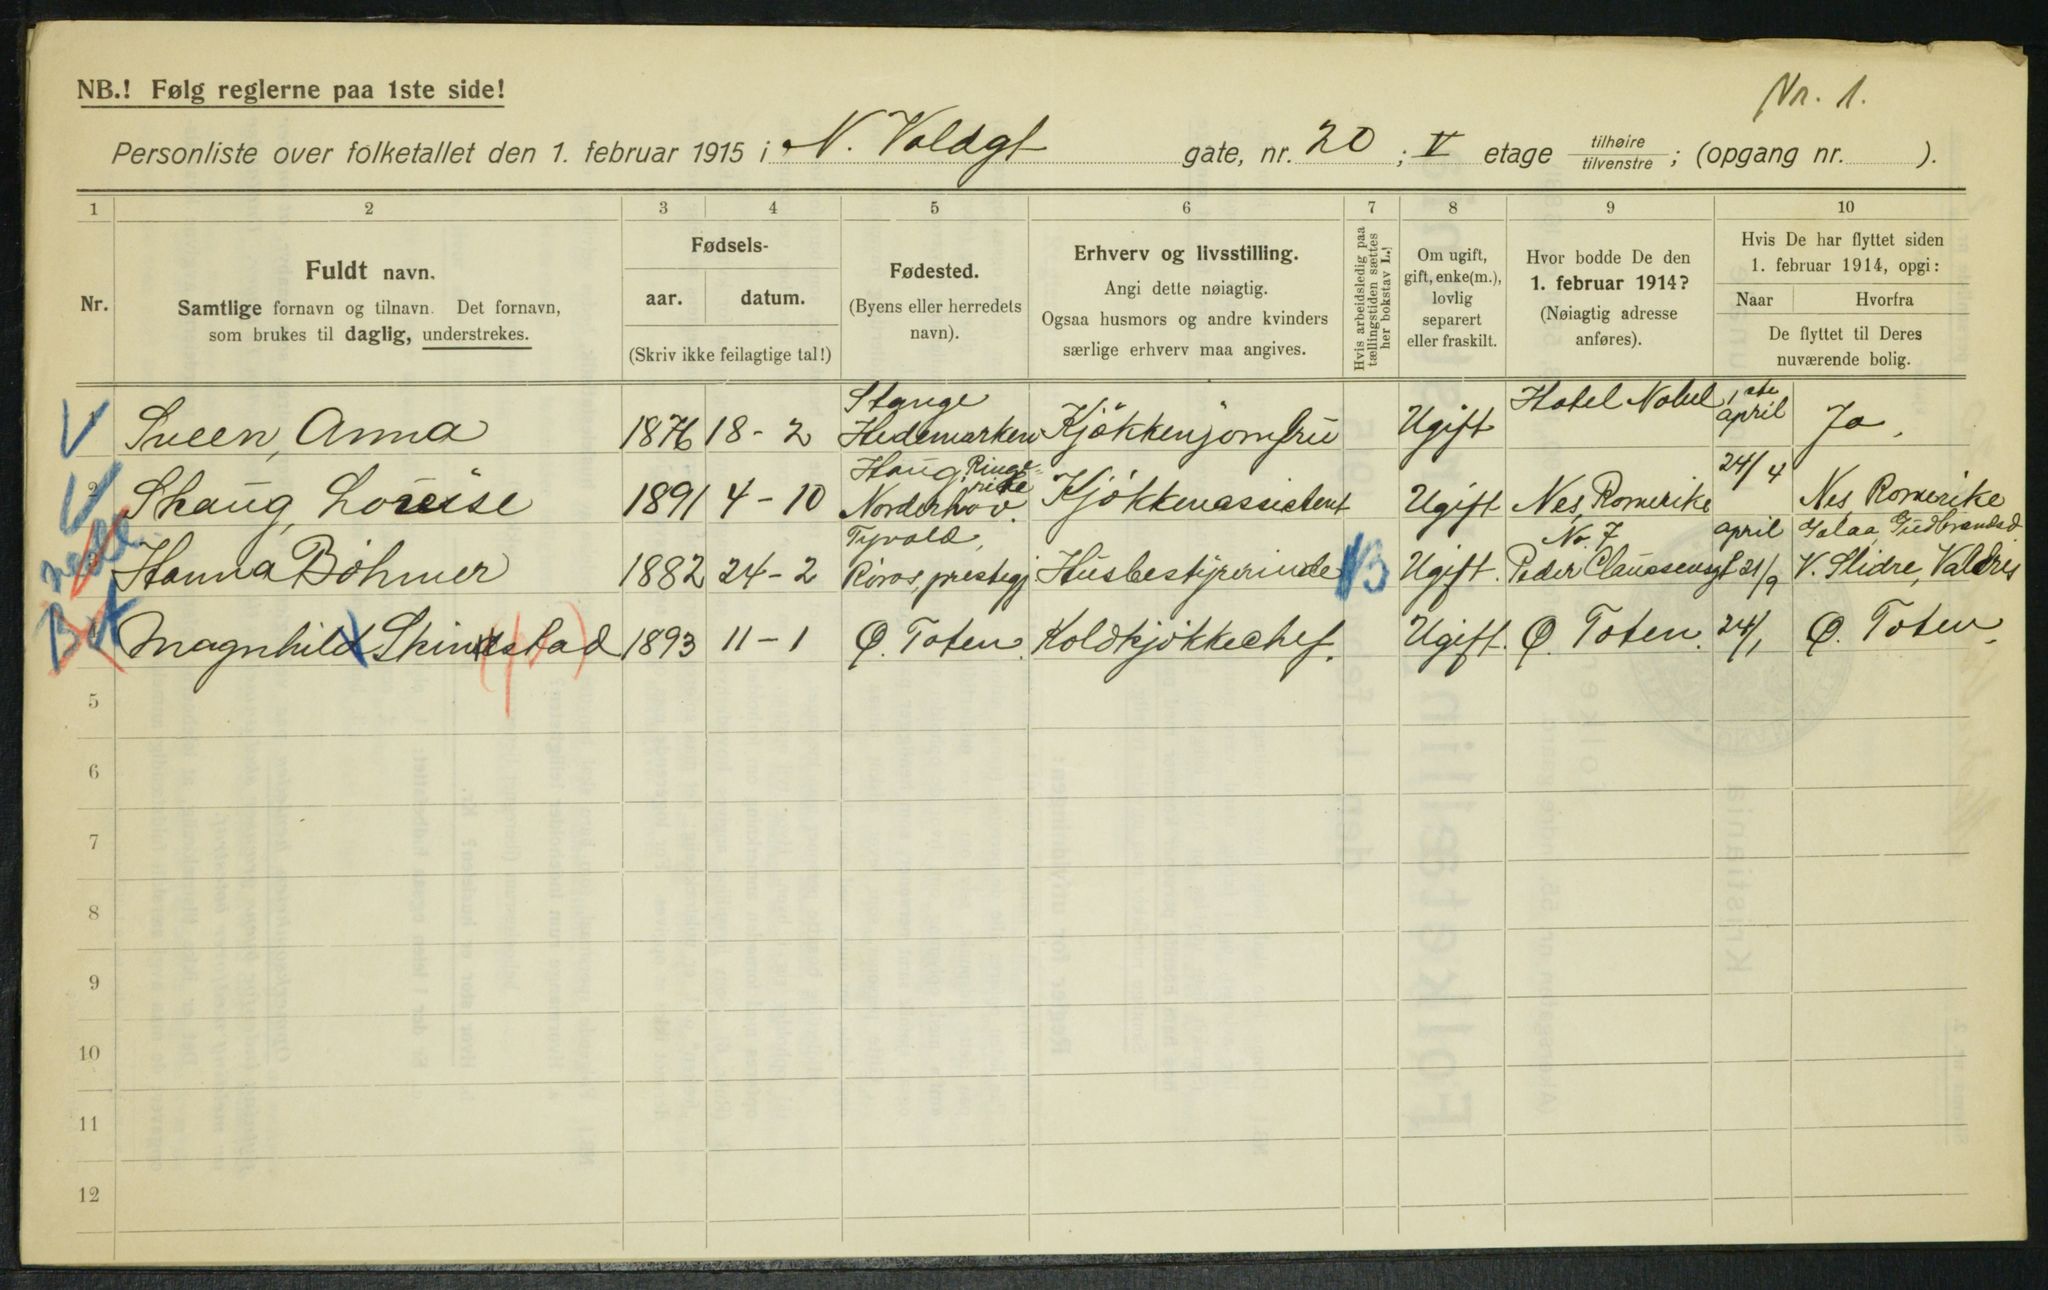 Nr. 1.
NB.! Følg reglerne paa 1ste side!
Personliste over folketallet den 1. februar 1915 i N. Voldgt gate, nr. 20 ; V etage tilhøire / tilvenstre ; (opgang nr. ).
1 2 3 4 5 6 7 8 9 10
Nr.
Fuldt navn.
Samtlige fornavn og tilnavn. Det fornavn,
som brukes til daglig, understrekes.
Fødsels-
aar. datum.
(Skriv ikke feilagtige tal!)
Fødested.
(Byens eller herredets
navn).
Erhverv og livsstilling.
Angi dette nøiagtig.
Ogsaa husmors og andre kvinders
særlige erhverv maa angives.
Hvis arbeidsledig paa
tællingstiden sættes
her bokstav L.!
Om ugift,
gift, enke(m.),
lovlig
separert
eller fraskilt.
Hvor bodde De den
1. februar 1914?
(Nøiagtig adresse
anføres).
Hvis De har flyttet siden
1. februar 1914, opgi:
Naar Hvorfra
De flyttet til Deres
nuværende bolig.
Stange Hotel Nobel 1ste
1 Sveen, Anna 1876 18-2 Hedemarken Kjökkenjomfru Ugift april Ja.
Haug, Ringerike 24/4
2 Skaug, Louise 1891 4-10 Norderhov. Kjökkenassistent Ugift Nes Romerike Nes, Romerike
Tyvold, No. 7 april
3 Hanna Böhmer 1882 24-2 Röros, prestegj Husbestyrerinde B Ugift. Peder Claussensgt 21/9 V. Slidre, Valdris
4 Magnhild Skindstad 1893 11-1 Ø. Toten. Koldkjökkechef. Ugift. Ø. Toten. 24/1 Ø. Toten.
5
6
7
8
9
10
11
12